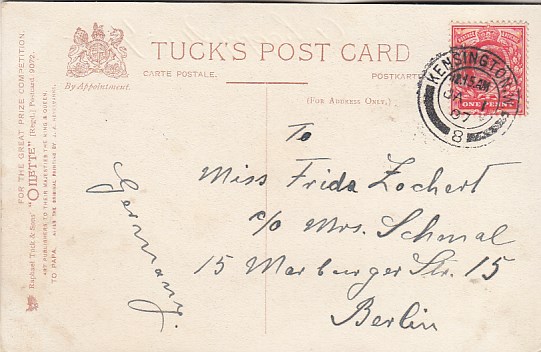 TUCK'S POST CARD
CARTE POSTALE.
POSTKARTE
(FOR ADDRESS ONLY.)
By Appointment.
FOR THE GREAT PRIZE COMPETITION.
Raphael Tuck & Sons' "OILETTE" [Regd.] Postcard 9072.
ART PUBLISHERS TO THEIR MAJESTIES THE KING & QUEEN.
TO PAPA.
KENSINGTON. W.
12.15 AM
JA 1
07
8
ONE PENNY
To
Miss Frida Zochert
c/o Mrs. Schmal
15 Marburger Str. 15
Berlin
Germany.